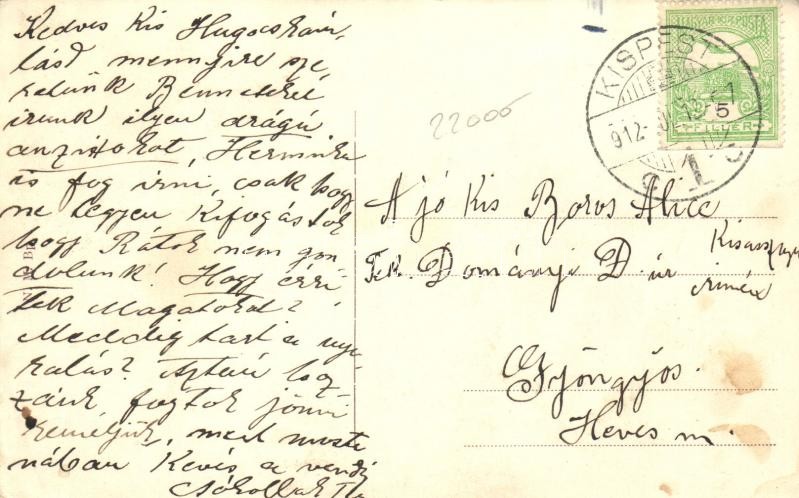 Kedves Kis Hugocskám
lásd mennyire sze
retünk Benneteket
irunk ilyen drágá
anzixokat, Herminka
is fog irni, csak hogy
ne legyen Kifogástok
hogy Rátok nem gon
dolunk! Hogy érzi
tek Magatokat?
Meddig tart a nya
ralás? Aztán hoz
zánk fogtok jönni
reméljük, mert mosta
nában Kevés a vendég
Csókollak
22006
MAGYAR KIR. POSTA
5
FILLÉR
KISPEST
912
A jó Kis Boros Alice
Kisasszony
Tek. Dományi D. úr
címén
Gyöngyös.
Heves m.